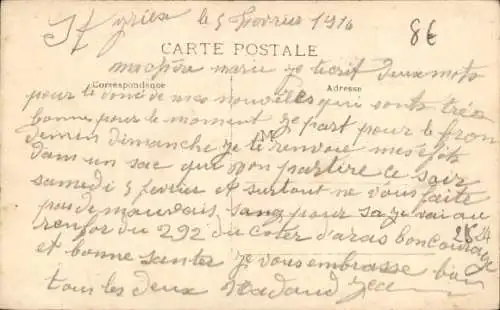 St Yrieix le 5 Fevrier 1916
8€
CARTE POSTALE
ma chère marie je tecrit deux mots
Correspondance
Adresse
pour te doné de mes nouvelles qui sont très
bonne pour le moment je part pour le fron
demen dimanche M je te renvoie mes éfet
dans un sac qui von partire ce soir
samedi 5 fevrier et surtout ne vous faite
pas de mauvais sang pour sa je vai au
renfor du 292 du coter d'aras bon courage
et bonne santer je vous embrasse bien
tous les deux Nadaud Jean